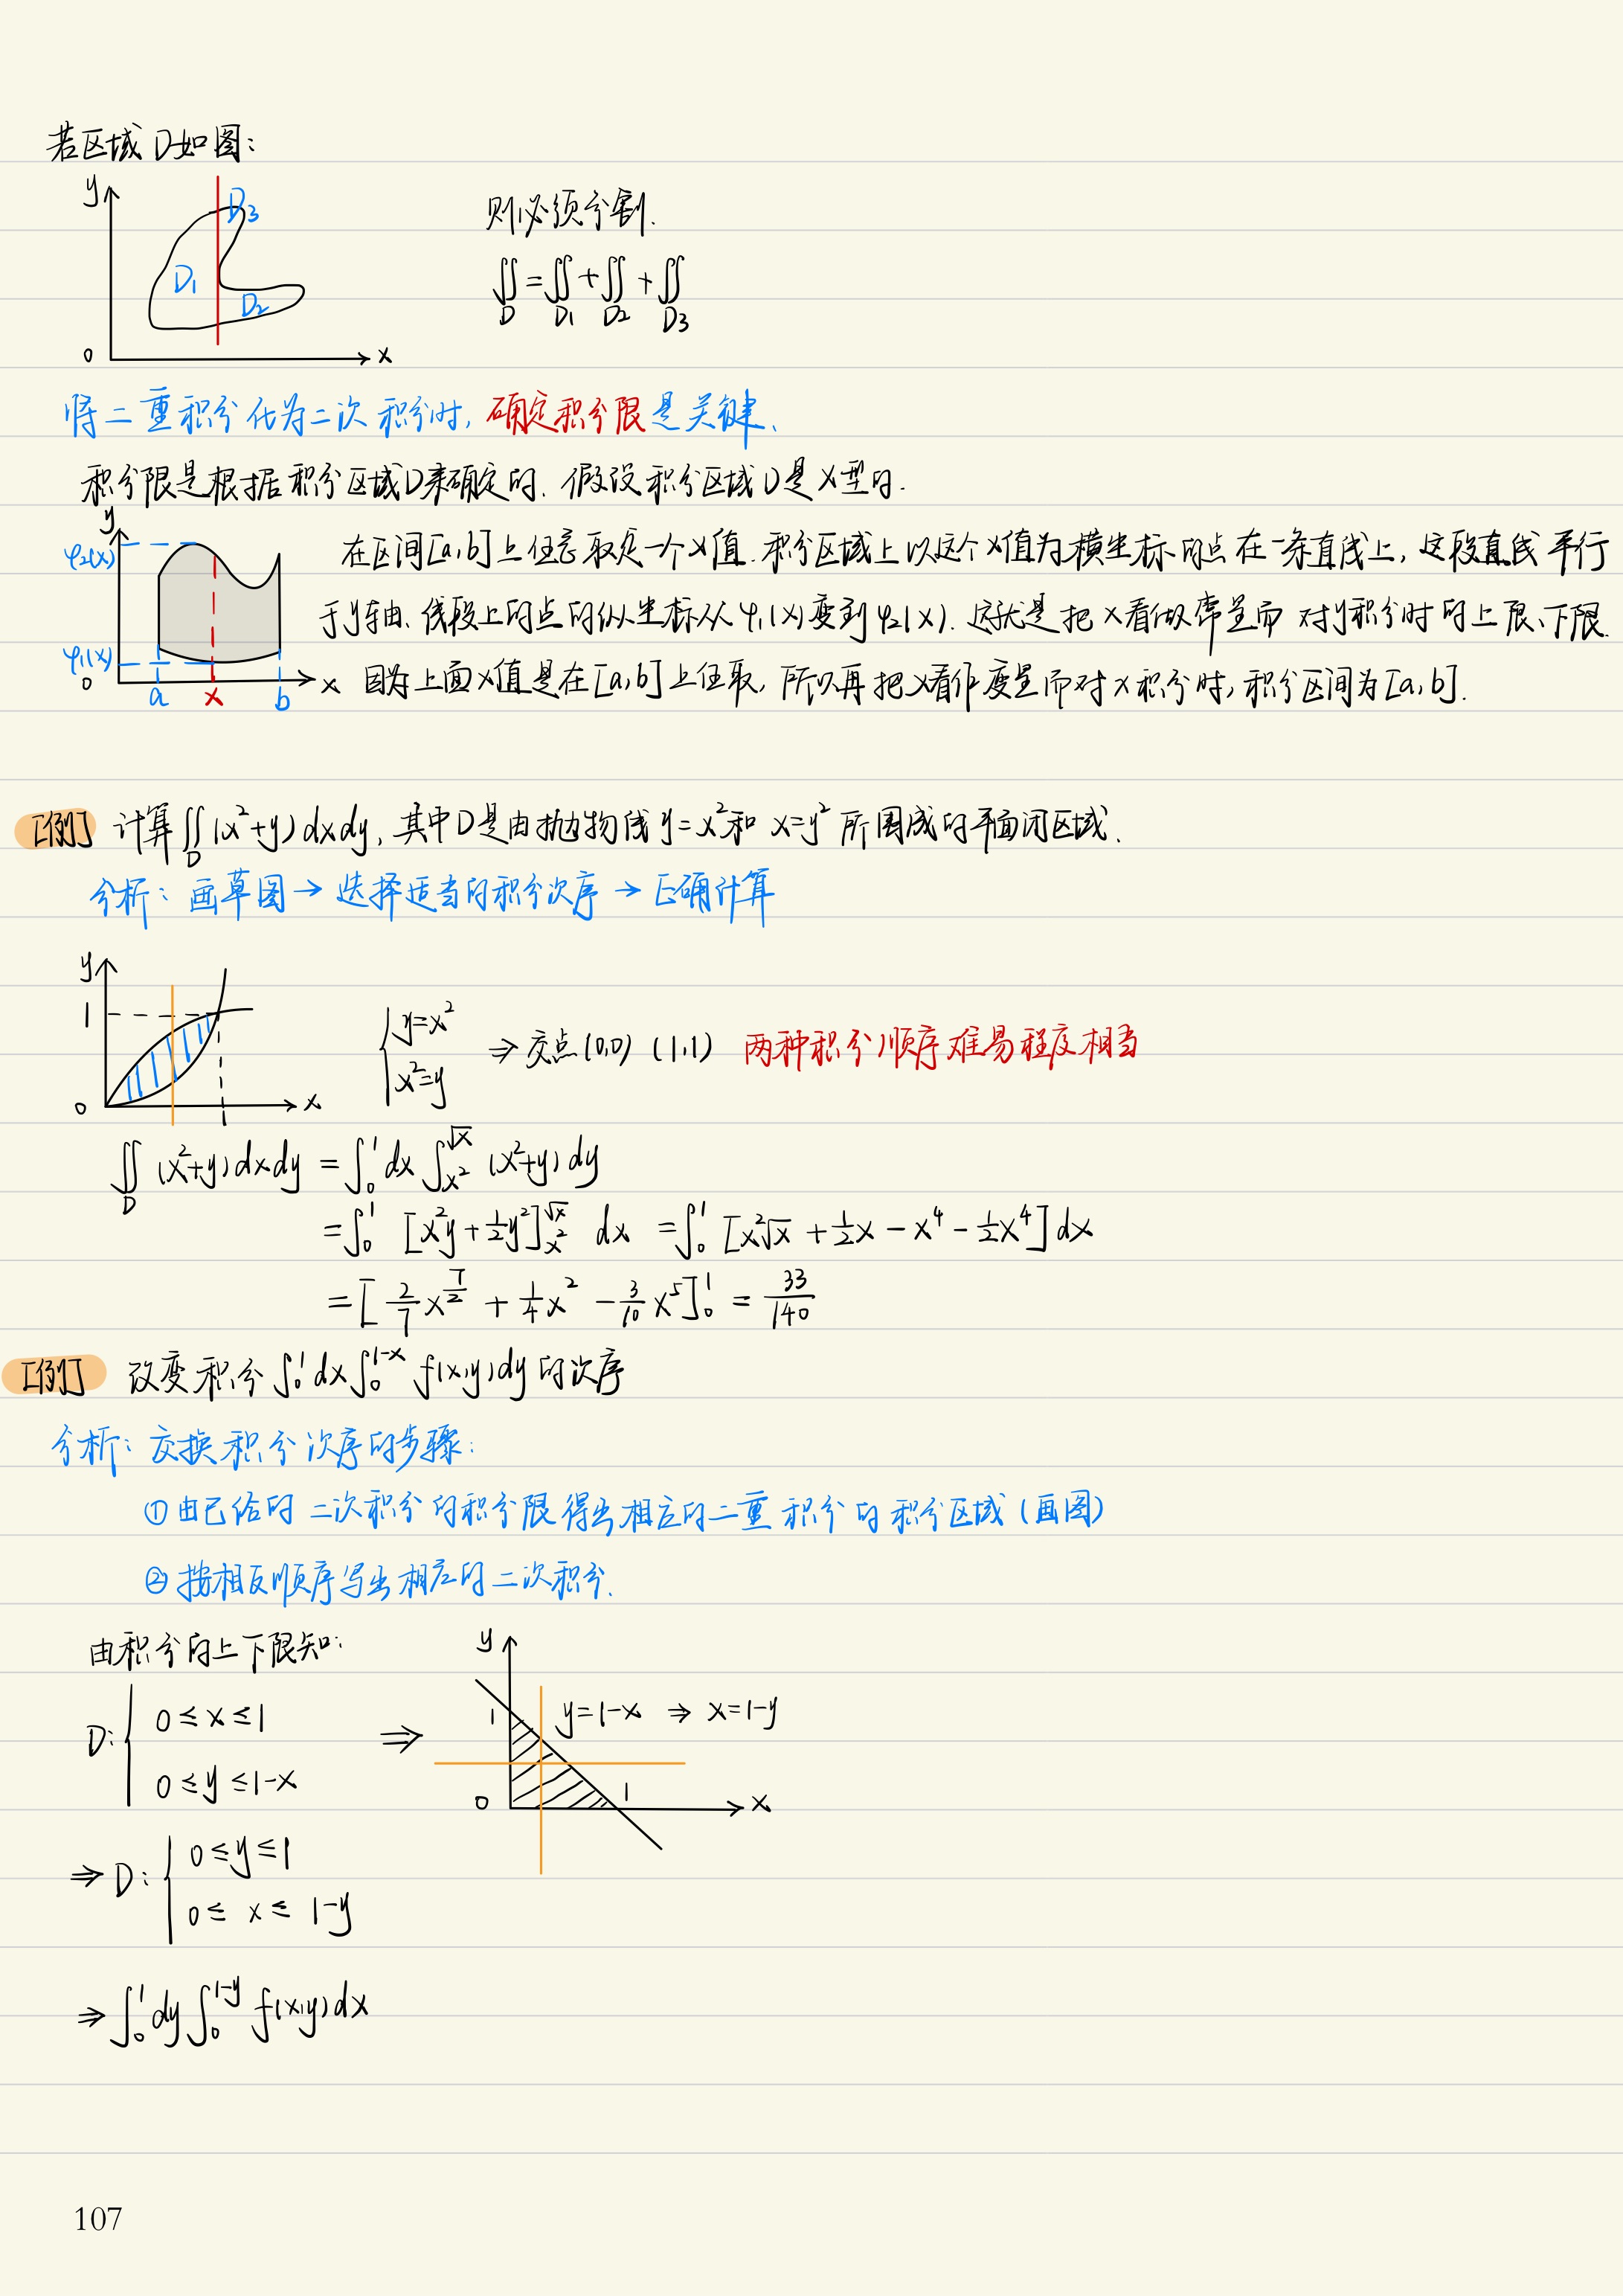 若区域D如图:
y D3 D1 D2 0 x
则必须分割.
∬_D = ∬_D1 + ∬_D2 + ∬_D3
将二重积分化为二次积分时, 确定积分限是关键、
积分限是根据积分区域D来确定的. 假设积分区域D是X型的.
y φ2(x) φ1(x) 0 a x b x
在区间[a,b]上任意取定一个x值. 积分区域上以这个x值为横坐标的点在一条直线上, 这段直线平行
于y轴、线段上的点的纵坐标从φ1(x)变到φ2(x). 这就是把x看做常量而对y积分时的上限、下限.
因为上面x值是在[a,b]上任取, 所以再把x看作变量而对x积分时, 积分区间为[a,b].
[例] 计算∬_D (x²+y)dxdy, 其中D是由抛物线y=x²和x=y²所围成的平面闭区域.
分析: 画草图→选择适当的积分次序→正确计算
y 1 0 1 x
{ y=x²
x²=y ⇒ 交点(0,0) (1,1) 两种积分顺序难易程度相当
∬_D (x²+y)dxdy = ∫_0^1 dx ∫_{x²}^{√x} (x²+y)dy
= ∫_0^1 [x²y + ½y²]_{x²}^{√x} dx = ∫_0^1 [x²√x + ½x - x⁴ - ½x⁴]dx
= [2/7 x^{7/2} + 1/4 x² - 3/10 x⁵]_0^1 = 33/140
[例] 改变积分∫_0^1 dx∫_0^{1-x} f(x,y)dy的次序
分析: 交换积分次序的步骤:
①由已给的二次积分的积分限得出相应的二重积分的积分区域(画图)
②按相反顺序写出相应的二次积分.
由积分的上下限知:
D: { 0≤x≤1
0≤y≤1-x ⇒
y 1 y=1-x ⇒ x=1-y 0 1 x
⇒ D: { 0≤y≤1
0≤ x≤ 1-y
⇒ ∫_0^1 dy∫_0^{1-y} f(x,y)dx
107